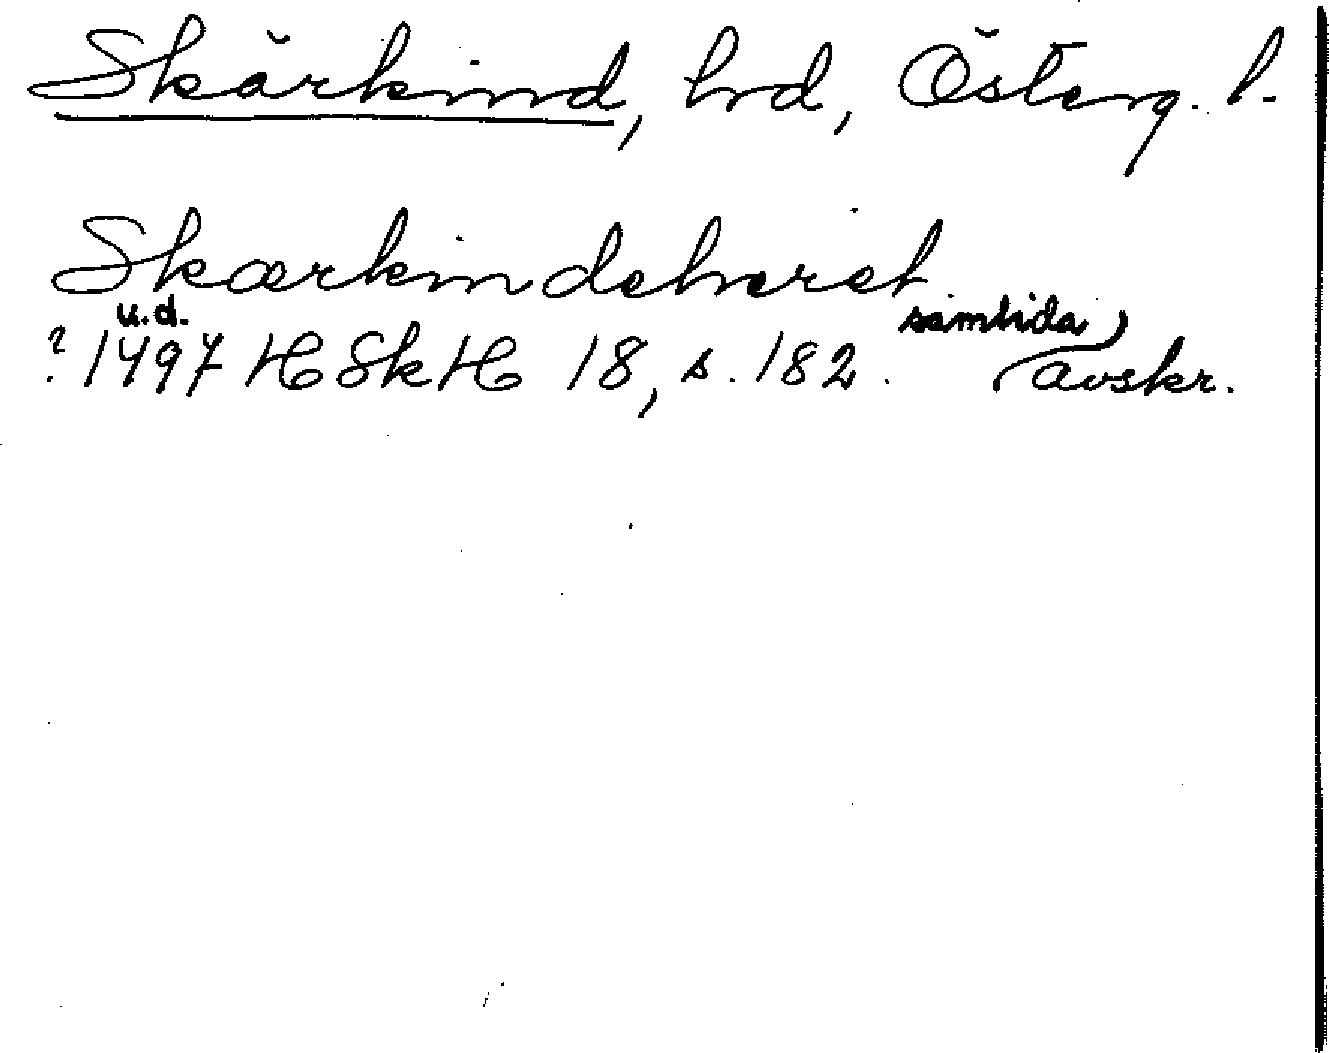 Skärkind, hrd, Österg. l.
Skærkindeheret
u.d.
? 1497 HSkH 18, s. 182. samtida avskr.